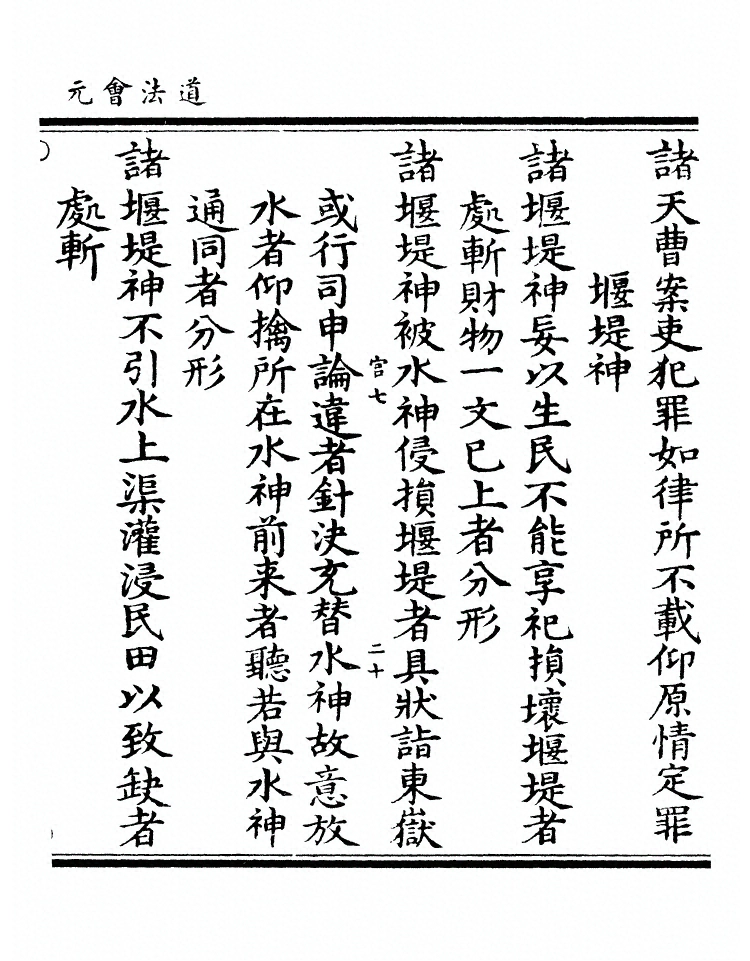 道法會元
諸天曹案吏犯罪如律所不載仰原情定罪
堰堤神
諸堰堤神妄以生民不能享祀損壞堰堤者
處斬財物一文已上者分形
諸堰堤神被水神侵損堰堤者具狀詣東嶽
宫七
二十
或行司申論違者針决充替水神故意放
水者仰擒所在水神前来者聽若與水神
通同者分形
諸堰堤神不引水上渠灌浸民田以致缺者
處斬